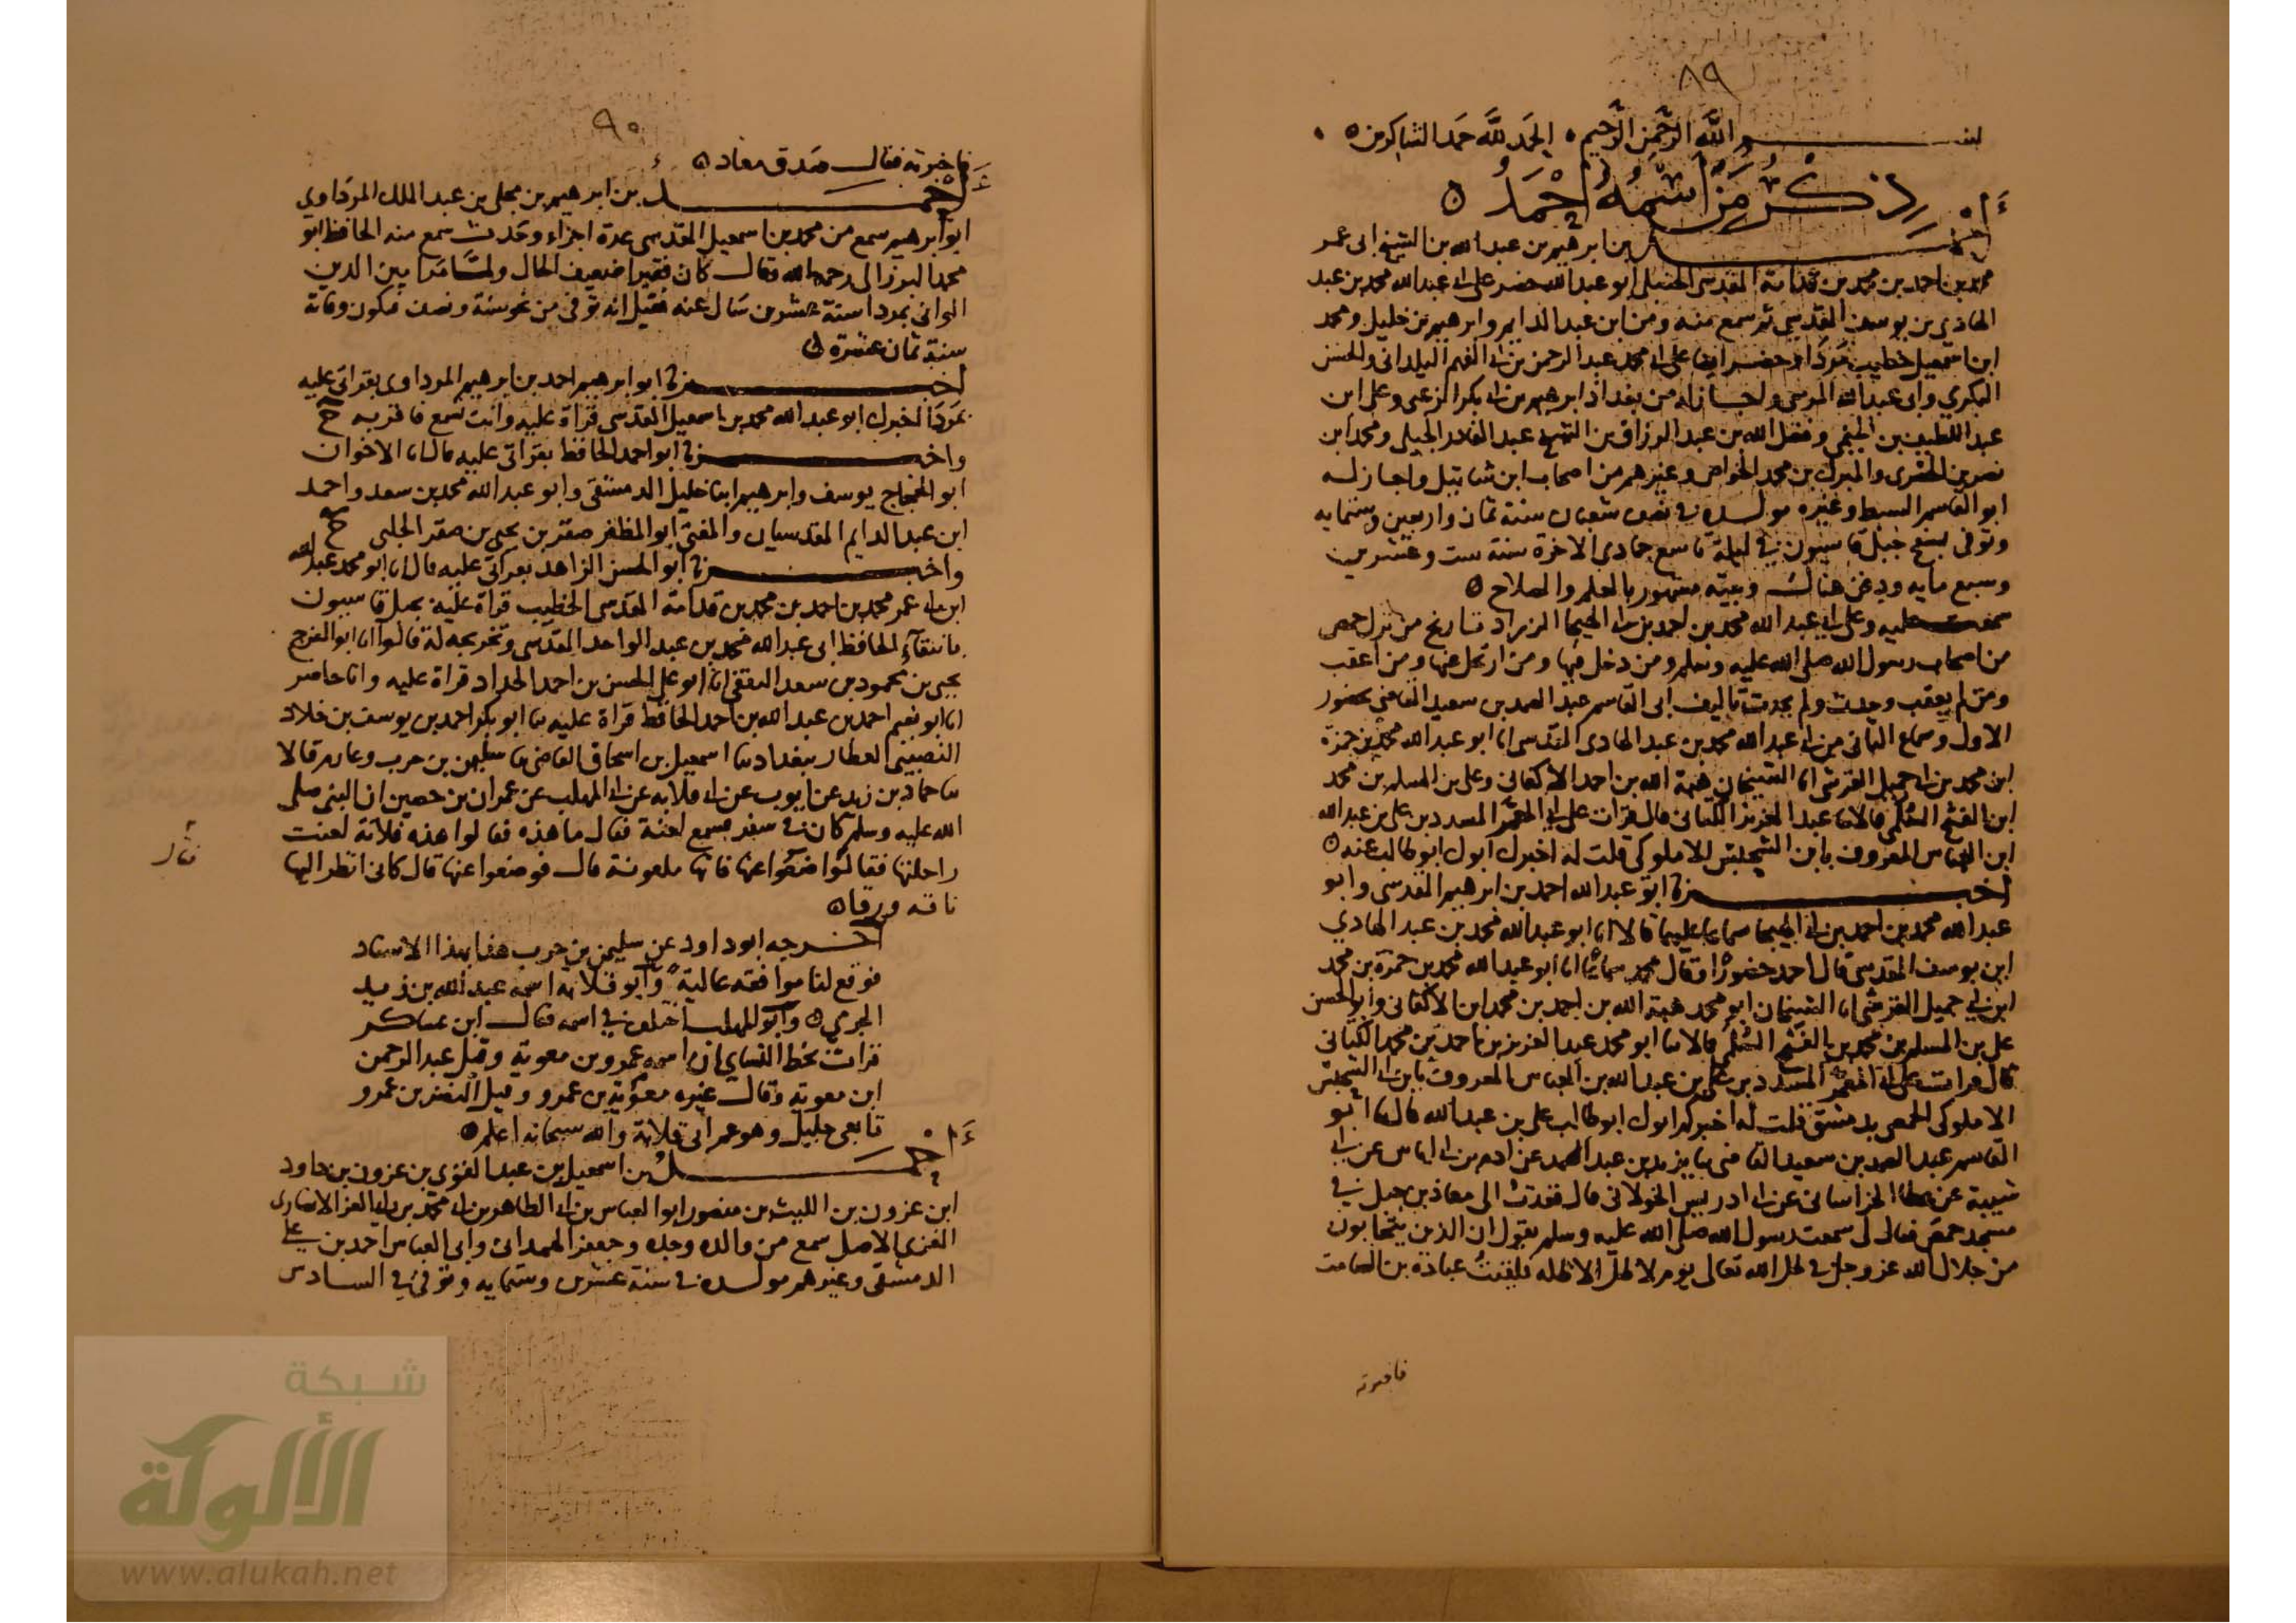 ٨٩
بسم الله الرحمن الرحيم الحمد لله حمد الشاكرين
ذكر من اسمه احمد
احمد بن ابرهيم بن عبد الله بن الشيخ ابى عمر
محمد بن احمد بن محمد بن قدامة المقدسي الحنبلي ابو عبد الله حضر على ابى عبد الله محمد بن عبد
الهادي بن يوسف المقدسي ثم سمع منه ومن ابن عبد الدايم وابرهيم بن خليل ومحمد
ابن اسمعيل خطيب مردا وحضر ايضا على ابى محمد عبد الرحمن بن ابى الفهم اليلداني والحسن
البكري وابى عبد الله المرسي واجاز له من بغداد ابرهيم بن ابى بكر الزعبي وعلى ابن
عبد اللطيف بن الخيمي وفضل الله بن عبد الرزاق بن الشيخ عبد القادر الجيلي ومحمد ابن
نصر بن الحصري والمبرك بن محمد الخواص وغيرهم من اصحاب ابن شاتيل واجاز له
ابو القاسم السبط وغيره مولده في نصف شعبان سنة ثمان واربعين وستمايه
وتوفى بسفح جبل قاسيون في ليلة تاسع جمادى الاخرة سنة ست وعشرين
وسبع مايه ودفن هناك وبيته مشهور بالعلم والصلاح
سمعت عليه وعلى ابى عبد الله محمد بن احمد بن ابى الهيجا الزراد تاريخ من نزل حمص
من اصحاب رسول الله صلى الله عليه وسلم ومن دخل فيها ومن ارتحل عنها ومن اعقب
ومن لم يعقب وحدث ولم يحدث تاليف ابى القاسم عبد الصمد بن سعيد القاضي بحضور
الاول وسماع الثانى من ابى عبد الله محمد بن عبد الهادى المقدسي انا ابو عبد الله محمد بن حمزة
ابن محمد بن ابى جميل القرشي انا الشيخان هبة الله بن احمد الاكفاني وعلى بن المسلم بن محمد
ابن الفتح السلمي قالا ثنا عبد العزيز الكتاني قال قرات على ابى المعمر المسدد بن على بن عبد الله
ابن العباس المعروف بابن السجليس الاملوكي قلت له اخبرك ابوك ابو طالب عنه
اخبرنا ابو عبد الله احمد بن ابرهيم المقدسي وابو
عبد الله محمد بن احمد بن ابى الهيجا سماعا عليهما قالا انا ابو عبد الله محمد بن عبد الهادي
ابن يوسف المقدسي قال احمد حضورا وقال محمد سماعا انا ابو عبد الله محمد بن حمزة بن محمد
ابن ابى جميل القرشي انا الشيخان ابو محمد هبة الله بن احمد بن محمد ابن الاكفاني وابو الحسن
على بن المسلم بن محمد بن الفتح السلمي قالا ثنا ابو محمد عبد العزيز بن احمد بن محمد الكتاني
قال قرات على ابى المعمر المسدد بن على بن عبد الله بن العباس المعروف بابن ابى السجليس
الاملوكي الحمصي بدمشق قلت له اخبركم ابوك ابو طالب على بن عبد الله قال ثنا ابو
القاسم عبد الصمد بن سعيد القاضي ثنا يزيد بن عبد الصمد عن ادم بن ابى اياس عن ابى
شيبة عن عطا الخراساني عن ابى ادريس الخولاني قال قعدت الى معاذ بن جبل في
مسجد حمص فقال لى سمعت رسول الله صلى الله عليه وسلم يقول ان الذين يتحابون
من جلال الله عز وجل في ظل الله تعالى يوم لا ظل الا ظله فلقيت عبادة بن الصامت
فاخبرته
٩٠
فاخبرته فقال صدق معاذ
احمد بن ابرهيم بن مجلى بن عبد الملك المرداوي
ابو ابرهيم سمع من محمد بن اسمعيل المقدسي عدة اجزاء وحدث سمع منه الحافظ ابو
محمد البرزالى رحمه الله وقال كان فقيرا ضعيف الحال ولما مر امين الدين
الواني بمردا سنة عشرين سال عنه فقيل انه توفى من نحو سنة ونصف فتكون وفاته
سنة ثمان عشرة
اخبرنا ابو ابرهيم احمد بن ابرهيم المرداوى بقراتى عليه
بمردا اخبرك ابو عبد الله محمد بن اسمعيل المقدسي قراة عليه وانت تسمع فاقر به ح
واخبرنا ابو احمد الحافظ بقراتى عليه قال انا الاخوان
ابو الحجاج يوسف وابرهيم ابنا خليل الدمشقي وابو عبد الله محمد بن سعد واحمد
ابن عبد الدايم المقدسيان والمفتى ابو المظفر صقر بن يحيى بن صقر الحلبى ح
واخبرنا ابو الحسن الزاهد بقراتى عليه قال انا ابو محمد عبد الله
ابن ابى عمر محمد بن احمد بن محمد بن قدامة المقدسي الخطيب قراة عليه بجبل قاسيون
بانتقاء الحافظ ابى عبد الله محمد بن عبد الواحد المقدسي وتخريجه له قالوا انا ابو الفرج
يحيى بن محمود بن سعد الثقفي انا ابو على الحسن بن احمد الحداد قراة عليه وانا حاضر
انا ابو نعيم احمد بن عبد الله بن احمد الحافظ قراة عليه ثنا ابو بكر احمد بن يوسف بن خلاد
النصيبي العطار ببغداد ثنا اسمعيل بن اسحاق القاضي ثنا سليمن بن حرب وعارم قالا
ثنا حماد بن زيد عن ايوب عن ابى قلابه عن ابى المهلب عن عمران بن حصين ان النبى صلى
الله عليه وسلم كان في سفر فسمع لعنة فقال ما هذه فقالوا هذه فلانة لعنت
راحلتها فقال ضعوا عنها فانها ملعونة قال فوضعوا عنها قال كانى انظر اليها
ناقه ورقا
اخرجه ابو داود عن سليمن بن حرب هذا بهذا الاسناد
فوقع لنا موافقه عالية وابو قلابه اسمه عبد الله بن زيد
الجرمي وابو المهلب اختلف في اسمه فقال ابن عساكر
قرات بخط النساي ان اسمه عمرو بن معوية وقيل عبد الرحمن
ابن معوية وقال غيره معوية بن عمرو وقيل النضر بن عمرو
تابعى جليل وهو عم ابى قلابة والله سبحانه اعلم
احمد بن اسمعيل بن عبد القوى بن عزون بن داود
ابن عزون بن الليث بن منصور ابو العباس بن ابى الطاهر بن ابى محمد بن ابى العز الانصارى
الغزى الاصل سمع من والده وجده وجعفر الهمداني وابى العباس احمد بن على
الدمشقي وغيرهم مولده في سنة عشرين وستمايه وتوفى في السادس
شبكة
الألوكة
www.alukah.net